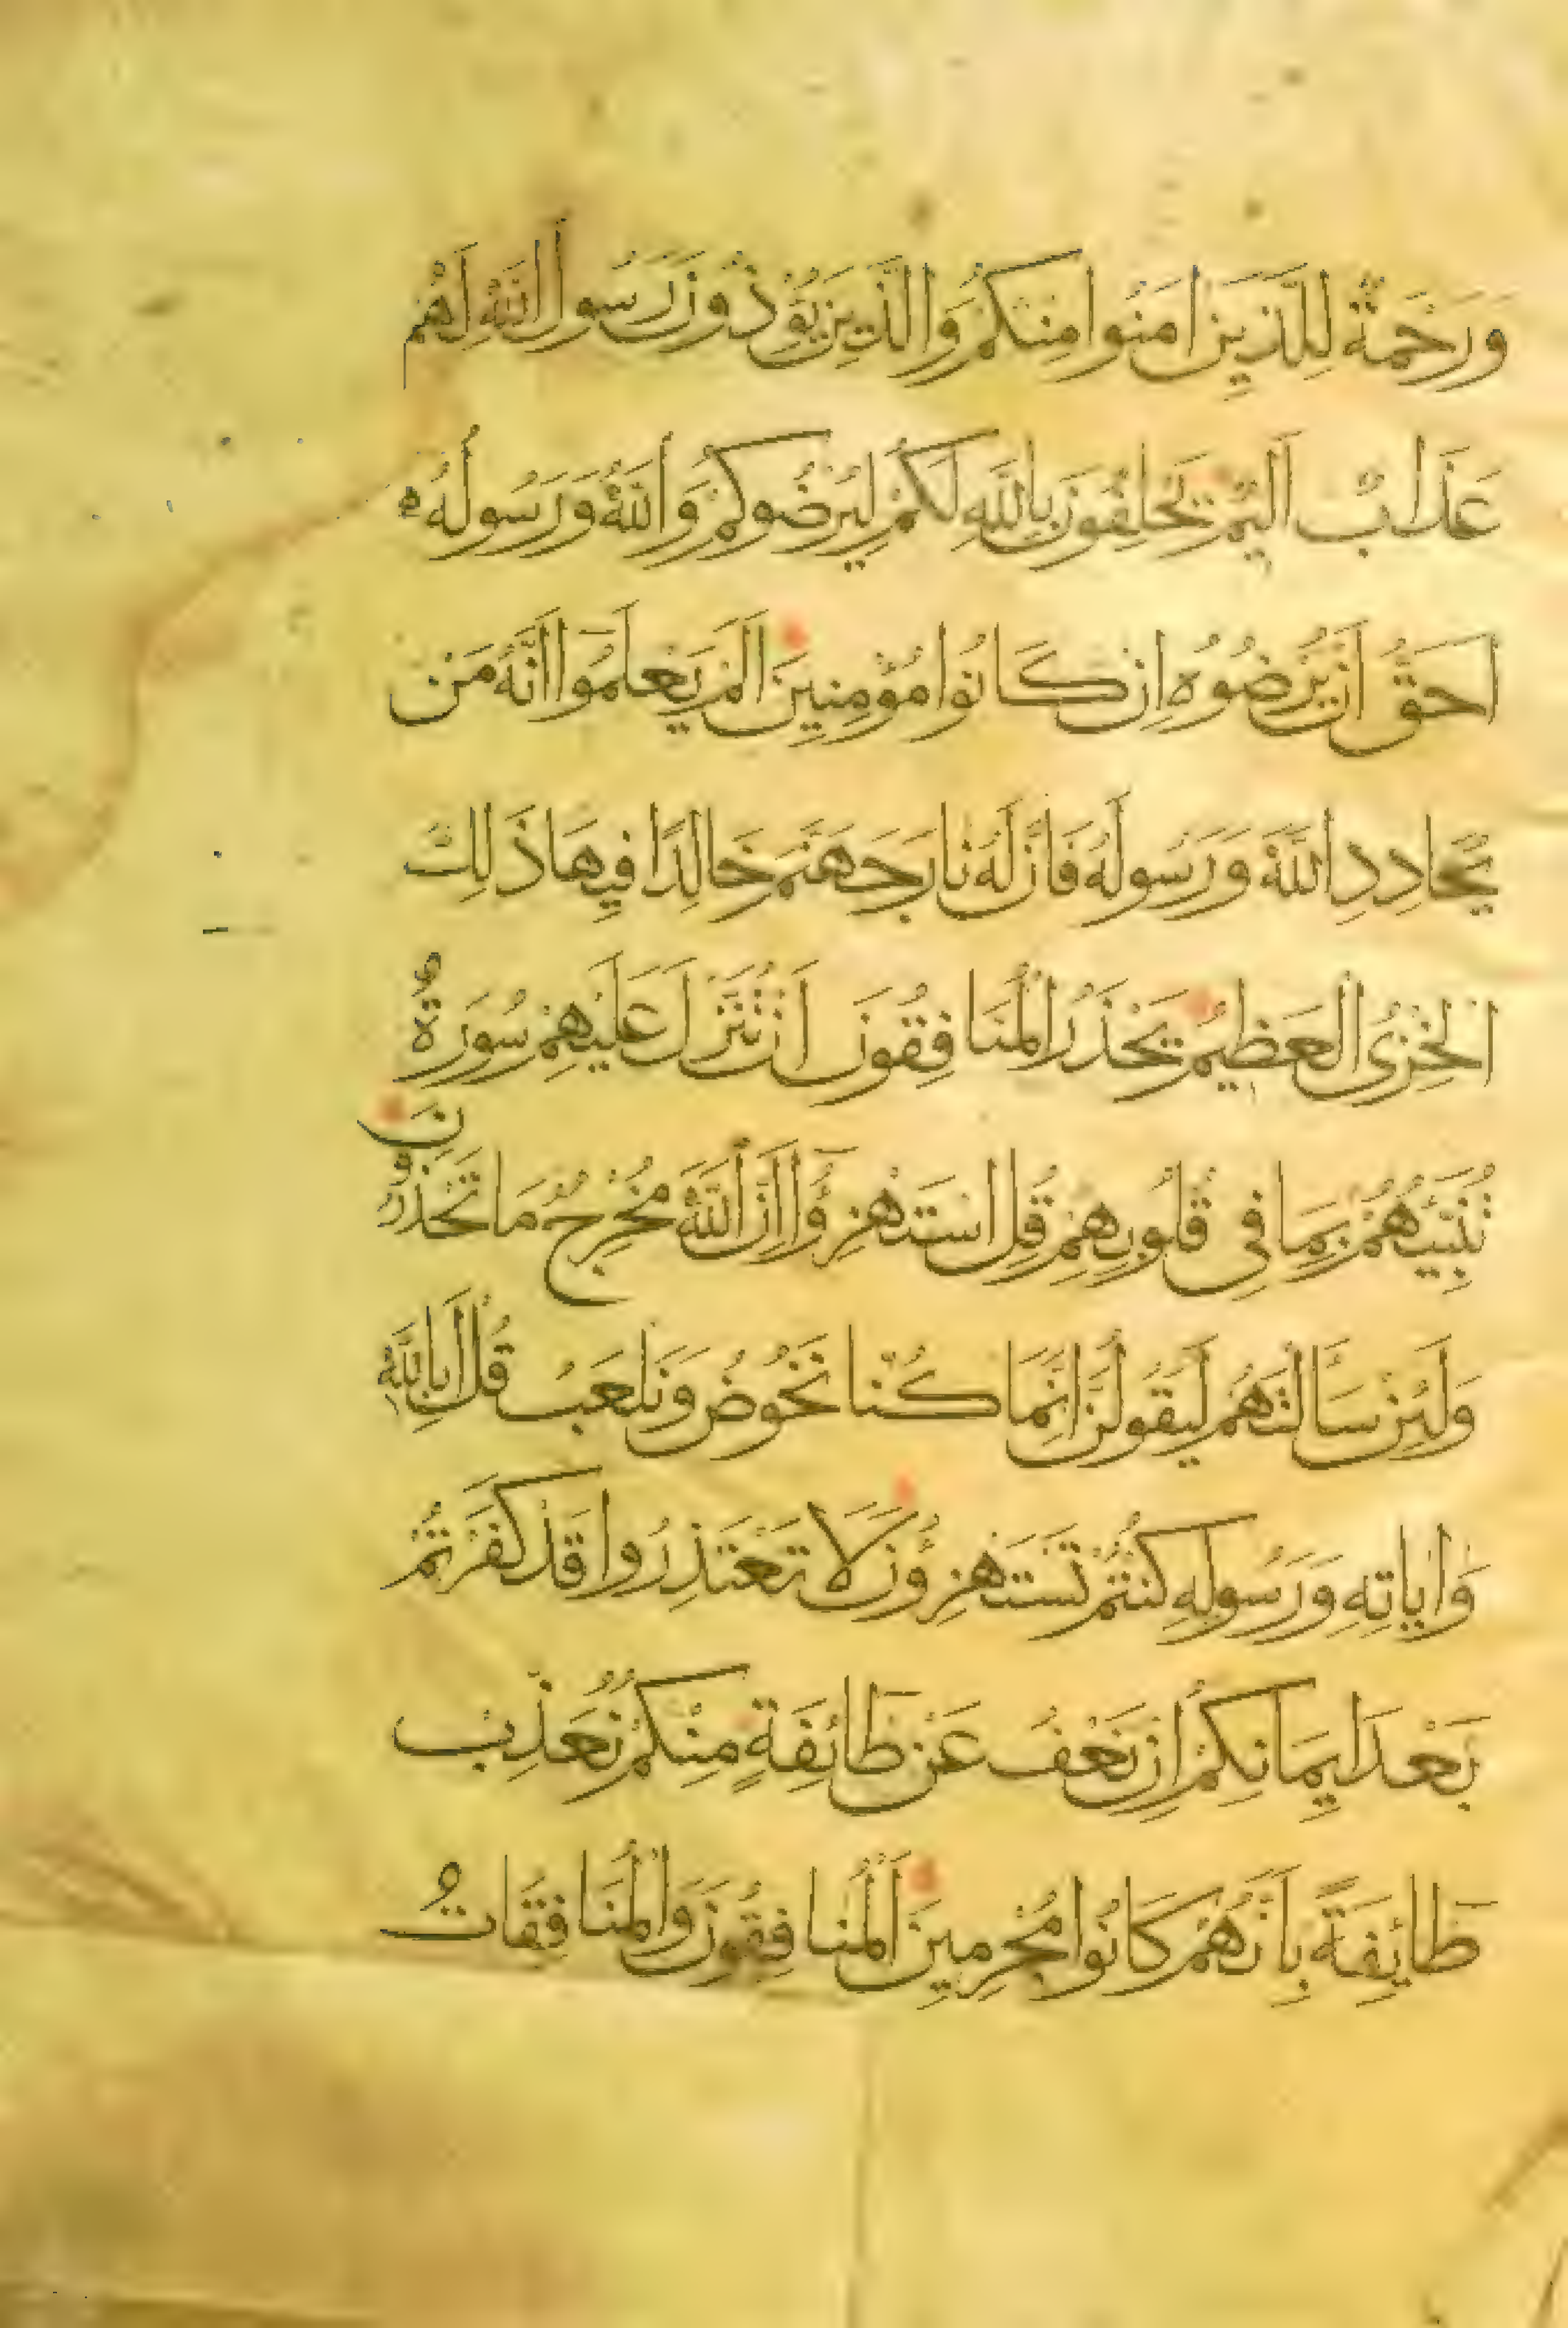 وَرَحْمَةٌ لِلَّذِينَ اٰمَنُوا مِنْكُمْ وَالَّذِينَ يُؤْذُونَ رَسُولَ اللَّهِ لَهُمْ
عَذَابٌ اَلِيمٌ يَحْلِفُونَ بِاللَّهِ لَكُمْ لِيُرْضُوكُمْ وَاللَّهُ وَرَسُولُهُ
اَحَقُّ اَنْ يُرْضُوهُ اِنْ كَانُوا مُؤْمِنِينَ اَلَمْ يَعْلَمُوا اَنَّهُ مَنْ
يُحَادِدِ اللَّهَ وَرَسُولَهُ فَاَنَّ لَهُ نَارَ جَهَنَّمَ خَالِدًا فِيهَا ذَلِكَ
الْخِزْيُ الْعَظِيمُ يَحْذَرُ الْمُنَافِقُونَ اَنْ تُنَزَّلَ عَلَيْهِمْ سُورَةٌ
تُنَبِّئُهُمْ بِمَا فِي قُلُوبِهِمْ قُلِ اسْتَهْزِؤُا اِنَّ اللَّهَ مُخْرِجٌ مَا تَحْذَرُونَ
وَلَئِنْ سَاَلْتَهُمْ لَيَقُولُنَّ اِنَّمَا كُنَّا نَخُوضُ وَنَلْعَبُ قُلْ اَبِاللَّهِ
وَاٰيَاتِهِ وَرَسُولِهِ كُنْتُمْ تَسْتَهْزِؤُنَ لَا تَعْتَذِرُوا قَدْ كَفَرْتُمْ
بَعْدَ اِيمَانِكُمْ اِنْ نَعْفُ عَنْ طَائِفَةٍ مِنْكُمْ نُعَذِّبْ
طَائِفَةً بِاَنَّهُمْ كَانُوا مُجْرِمِينَ اَلْمُنَافِقُونَ وَالْمُنَافِقَاتُ